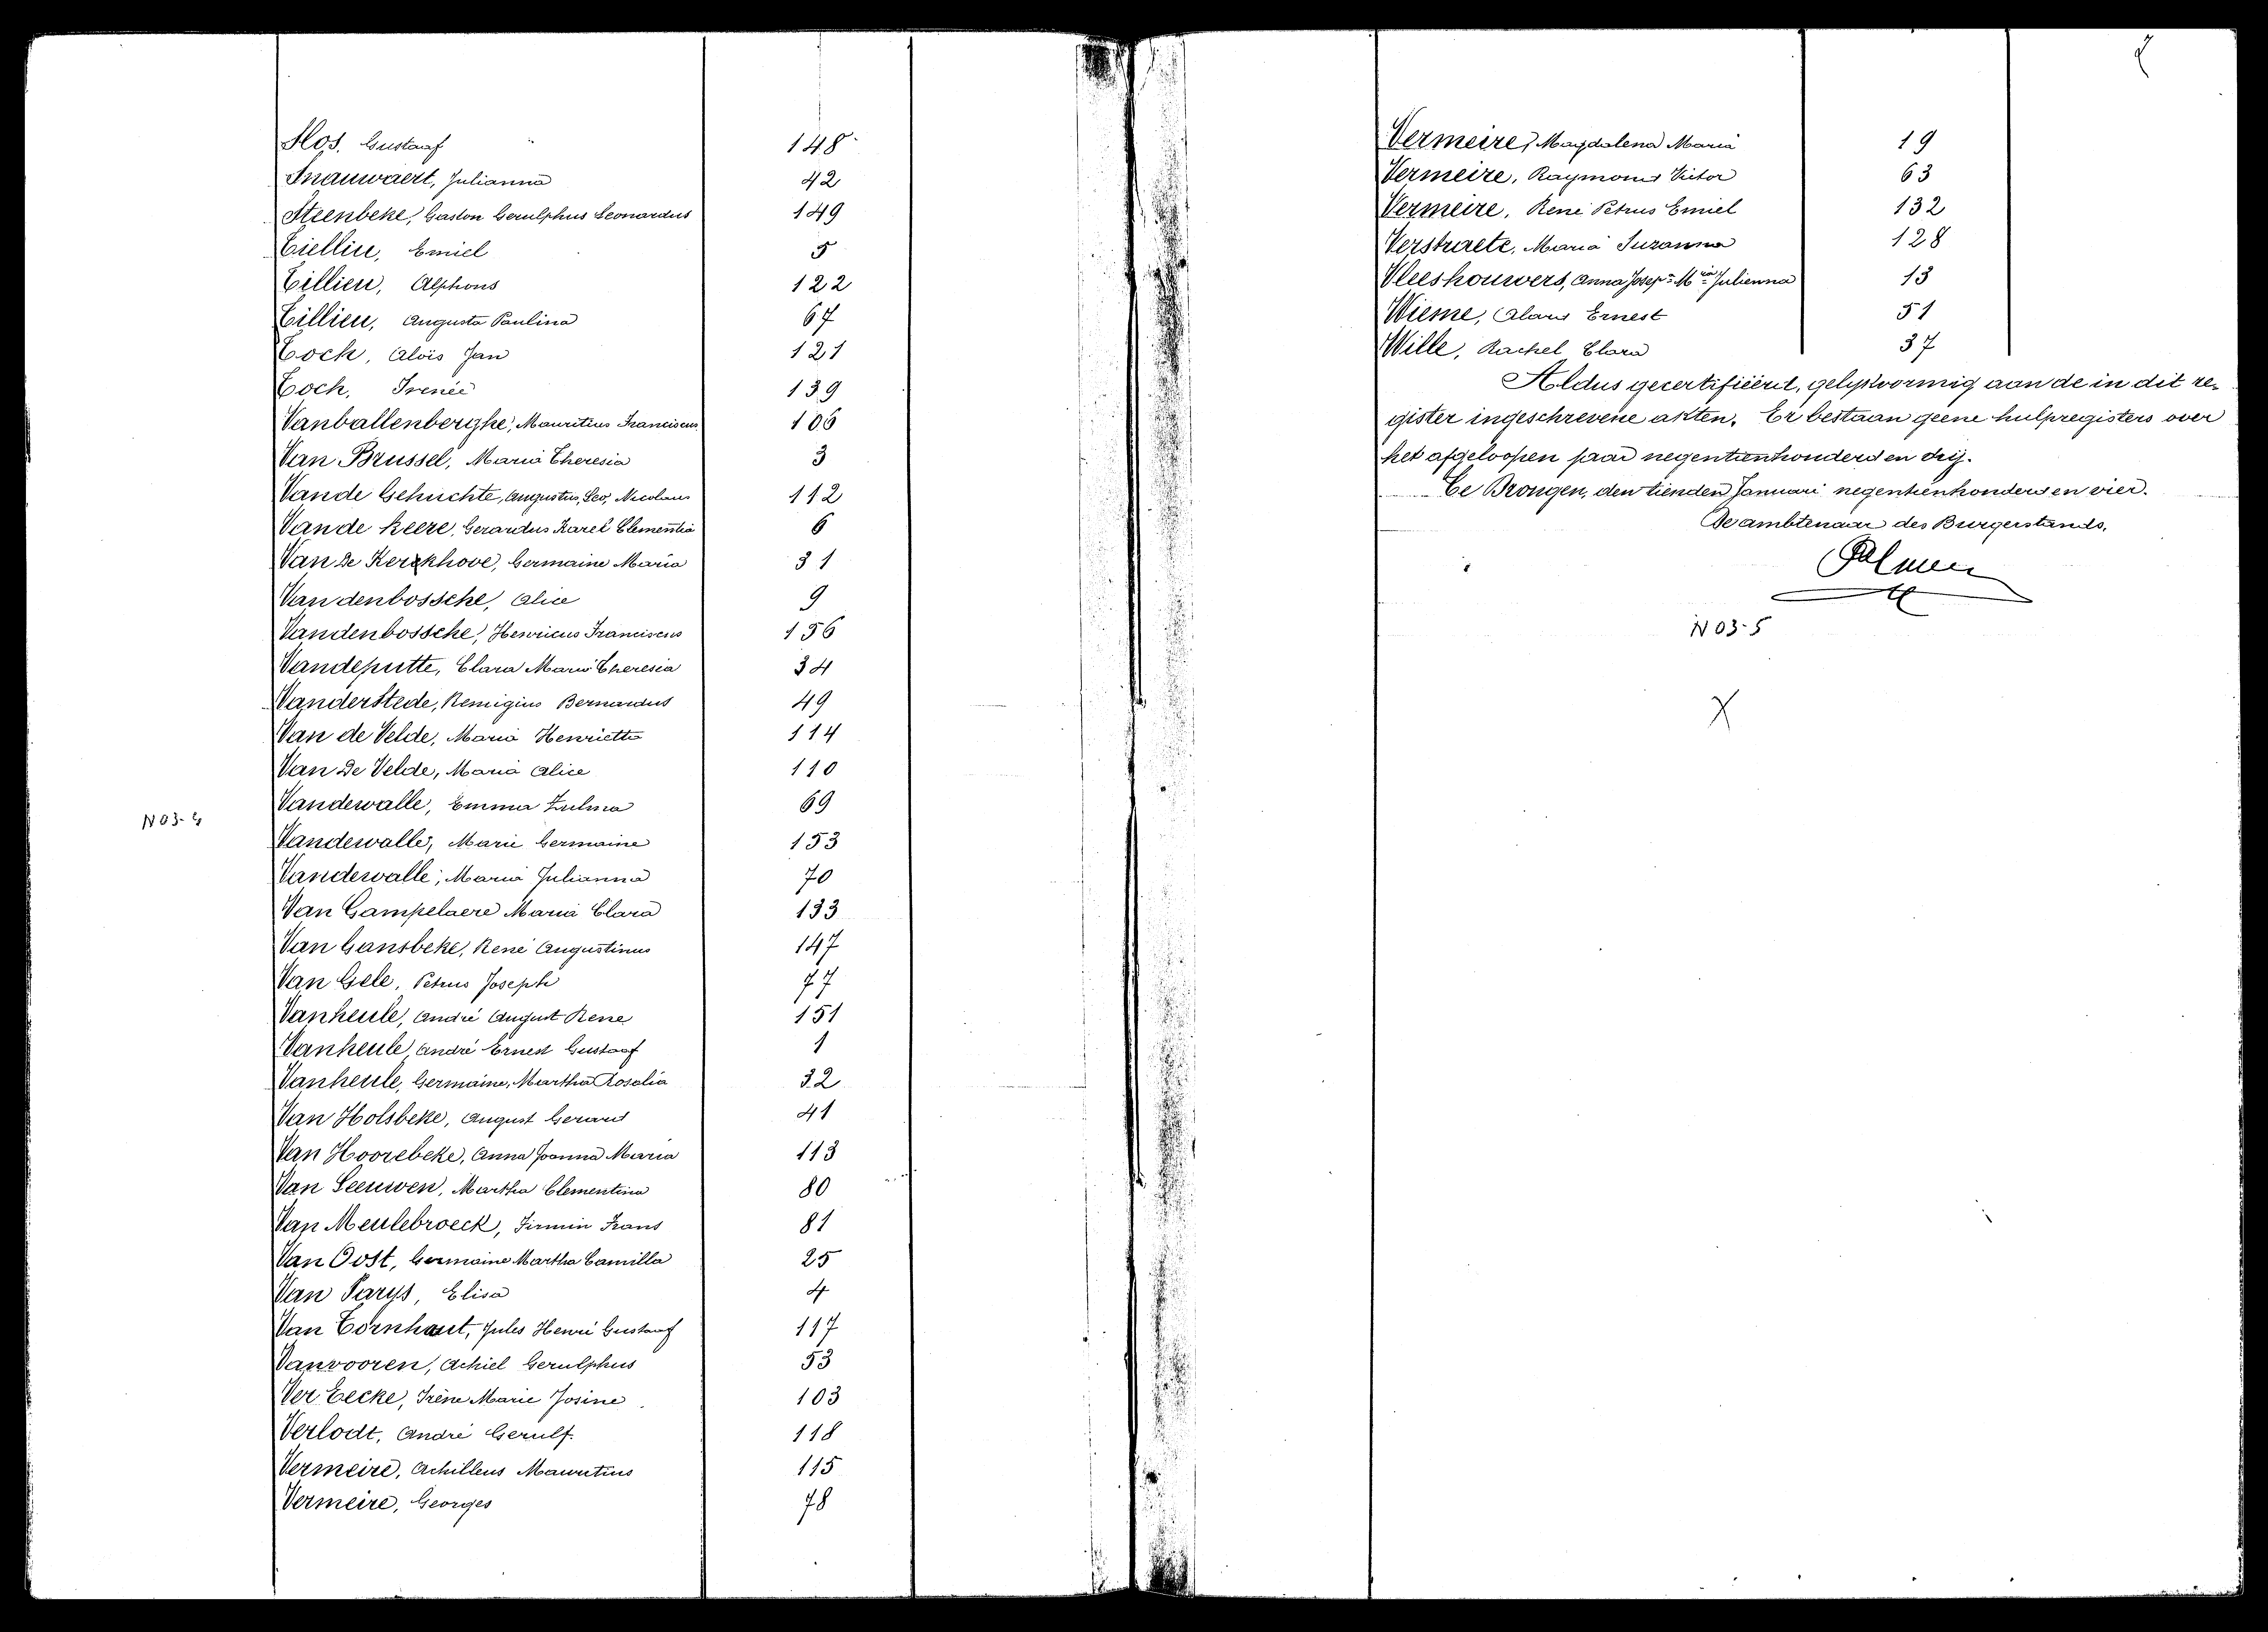 Slos. Gustaaf 148
Snauwaert, Julianna 42
Steenbeke, Gaston Gerulphus Leonardus 149
Tiellin, Emiel 5
Tillieu, Alphons 122
Tillieu, Augusta Paulina 67
Tock, Aloïs Jan 121
Tock, Irenée 139
Vanballenberghe, Mauritius Franciscus 106
Van Brussel, Maria Theresia 3
Vande Gehuchte, Augustus, Leo, Nicolaus 112
Vande Keere, Gerardus Karel Clementia 6
Van de Kerckhove, Germaine Maria 31
Vandenbossche, Alice 9
Vandenbossche, Henricus Franciscus 156
Vandeputte, Clara Maria Theresia 34
Vanderstede, Remigius Bernardus 49
Van de Velde, Maria Henrietta 114
Van De Velde, Maria Alice 110
Vandewalle, Emma Zulma 69
N 03-4
Vandewalle, Marie Germaine 153
Vandewalle, Maria Julianna 70
Van Gampelaere Maria Clara 133
Van Gansbeke, René Augustinus 147
Van Gele, Petrus Joseph 77
Vanheule, André August Rene 151
Vanheule, André Ernest Gustaaf 1
Vanheule, Germaine, Martha Rosalia 32
Van Holsbeke, August Gerard 41
Van Hoorebeke, Anna Joanna Maria 113
Van Leeuwen, Martha Clementina 80
Van Meulebroeck, Firmin Frans 81
Van Oost, Germaine Martha Camilla 25
Van Parys, Elisa 4
Van Tornhaut, Jules Henri Gustaaf 117
Vanvooren, Achiel Gerulphus 53
Ver Eecke, Irène Marie Josine 103
Verlodt, André Gerulf. 118
Vermeire, Achilleus Mauritius 115
Vermeire, Georges 78
Vermeire, Magdalena Maria 19
Vermeire, Raymond Victor 63
Vermeire, René Petrus Emiel 132
Verstraete, Maria Suzanna 128
Vleeshouwers, Anna Josep= M^ia= Julienna 13
Wieme, Alans Ernest 51
Wille, Rachel Clara 37
Aldus gecertifiëerd, gelijkvormig aan de in dit re-
gister ingeschrevene akten. Er bestaan geene hulpregisters over
het afgeloopen jaar negentienhonderd en drij.
Te Drongen, den tienden Januari negentienhonderd en vier.
De ambtenaar des Burgerstands,
N 03-5